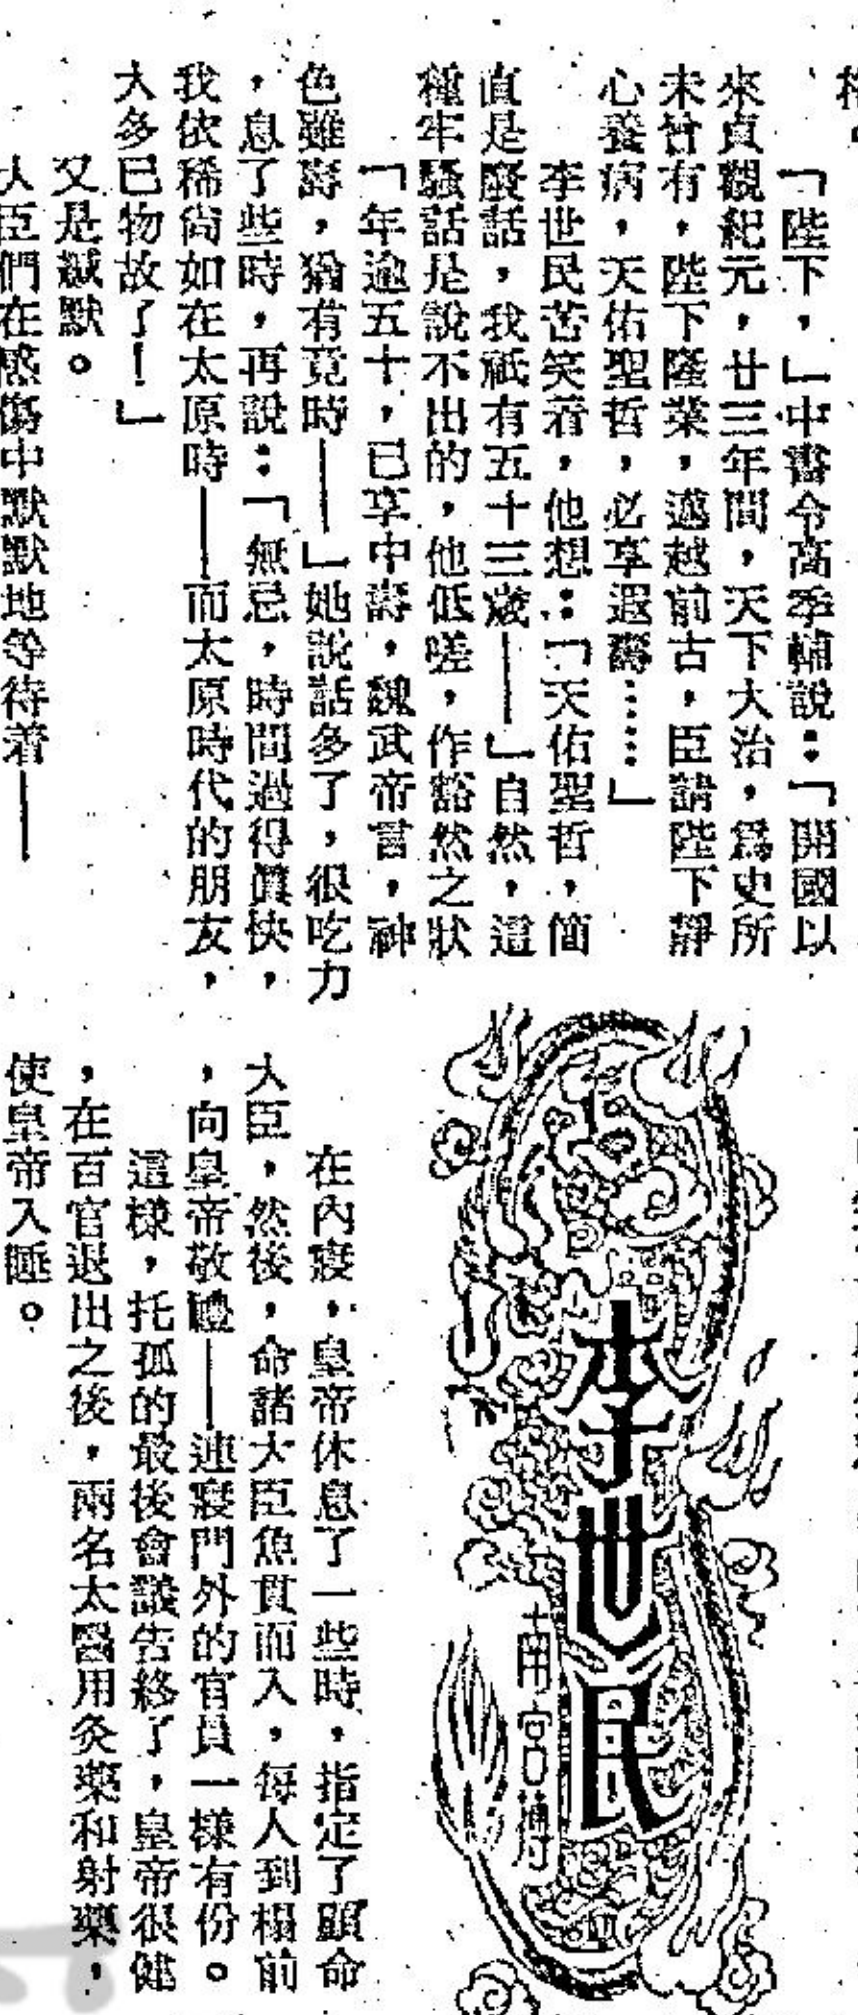 「陛下，」中書令高季輔說：「開國以
來貞觀紀元，廿三年間，天下大治，爲史所
未曾有，陛下隆業，邁越前古，臣請陛下靜
心養病，天佑聖哲，必享遐壽……」
李世民苦笑着，他想：「天佑聖哲，簡
直是廢話，我祇有五十三歲——」自然，這
種牢騷話是說不出的，他低嗟，作豁然之狀
「年逾五十，已享中壽，魏武帝言，神
色雖壽，猶有竟時——」她說話多了，很吃力
，息了些時，再說：「無忌，時間過得眞快，
我依稀尙如在太原時——而太原時代的朋友，
大多已物故了！」
又是緘默。
大臣們在感傷中默默地等待着——
李世民
南宮博
在內寢，皇帝休息了一些時，指定了顧命
大臣，然後，命諸大臣魚貫而入，每人到榻前
，向皇帝敬禮——連寢門外的官員一樣有份。
這樣，托孤的最後會議告終了，皇帝很健
，在百官退出之後，兩名太醫用灸藥和射藥，
使皇帝入睡。